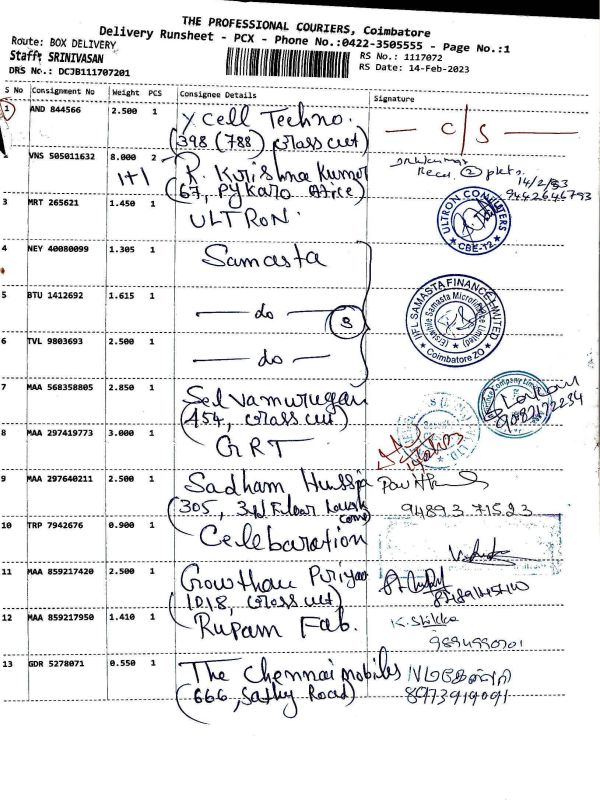 THE PROFESSIONAL COURIERS, Coimbatore
Delivery Runsheet - PCX - Phone No.:0422-3505555 - Page No.:1
Route: BOX DELIVERY
Staff: SRINIVASAN
RS No.: 1117072
DRS No.: DCJB111707201
RS Date: 14-Feb-2023
S No Consignment No Weight PCS Consignee Details Signature
1 AND 844566 2.500 1 X cell Techno.
(398 (788) cross cut)
— C/S —
VNS 505011632 8.000 2 R. Krishna Kumar
1+1 (67, Py karo office)
Recd. 2 pkts
14/2/23
9442646793
3 MRT 265621 1.450 1 ULTRON.
ULTRON COMPUTERS
★ CBE-12 ★
4 NEY 40080099 1.305 1 Samasta
5 BTU 1412692 1.615 1 — do —
S
IIFL SAMASTA FINANCE LIMITED
(Erstwhile Samasta Microfinance Limited)
★ Coimbatore ZO ★
6 TVL 9803693 2.500 1 — do —
7 MAA 568358805 2.850 1 Selvamurugan
(454, cross cut)
9082172234
8 MAA 297419773 3.000 1 GRT
9 MAA 297640211 2.500 1 Sadham Hussja
(305, 3rd Floor
94893 71523
10 TRP 7942676 0.900 1 Celebaration
11 MAA 859217420 2.500 1 Gowtham Priyaa
(1018, cross cut)
12 MAA 859217950 1.410 1 Rupam Fab.
K. Shikka
9894990701
13 GDR 5278071 0.550 1 The Chennai mobiles
(666, Sathy Road)
8973919091